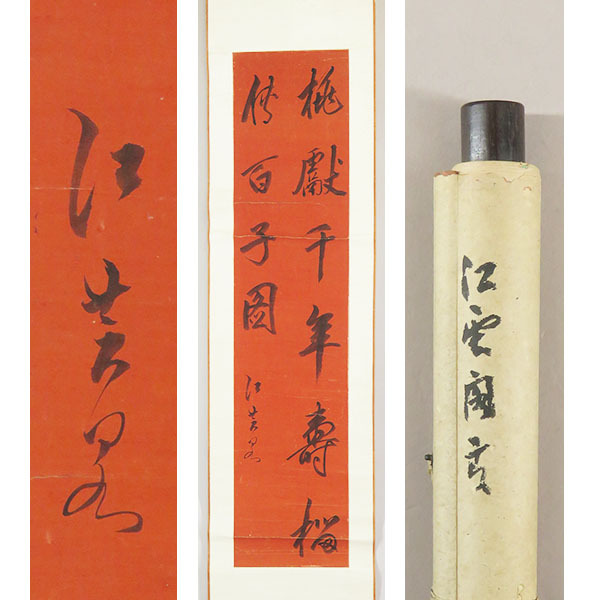 江芸閣
桃獻千年壽榴
傳百子圖
江芸閣
江雲閣